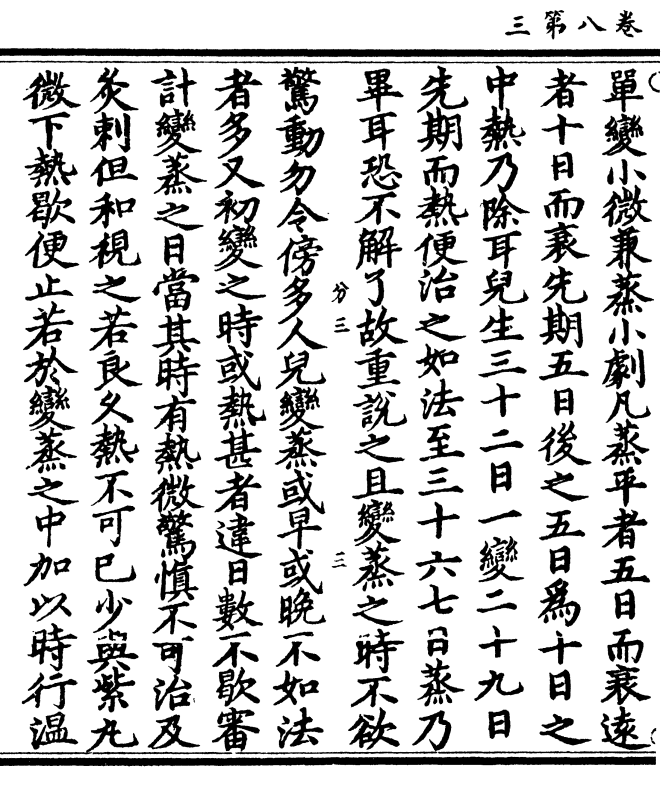 卷八第三
單變小微兼蒸小劇凡蒸平者五日而衰遠
者十日而衰先期五日後之五日爲十日之
中熱乃除耳兒生三十二日一變二十九日
先期而熱便治之如法至三十六七日蒸乃
畢耳恐不解了故重說之且變蒸之時不欲
分三
三
驚動勿令傍多人兒變蒸或早或晚不如法
者多又初變之時或熱甚者違日數不歇審
計變蒸之日當其時有熱微驚慎不可治及
灸刺但和視之若良久熱不可已少與紫丸
微下熱歇便止若於變蒸之中加以時行温